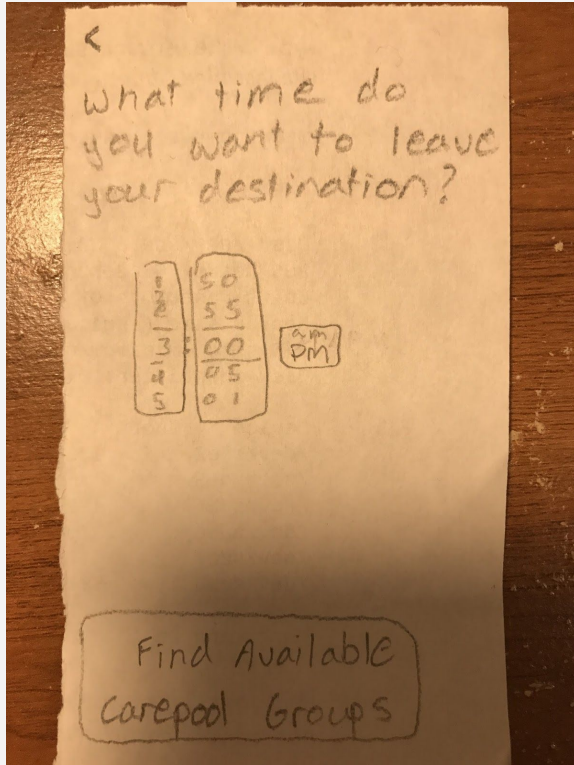 <
What time do
you want to leave
your destination?
1 50
2 55
3 : 00
4 05
5 01
am
pm
Find Available
Carepool Groups